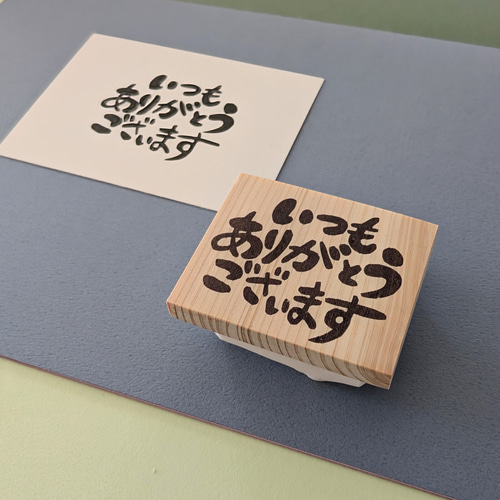 いつも
ありがとう
ございます
いつも
ありがとう
ございます